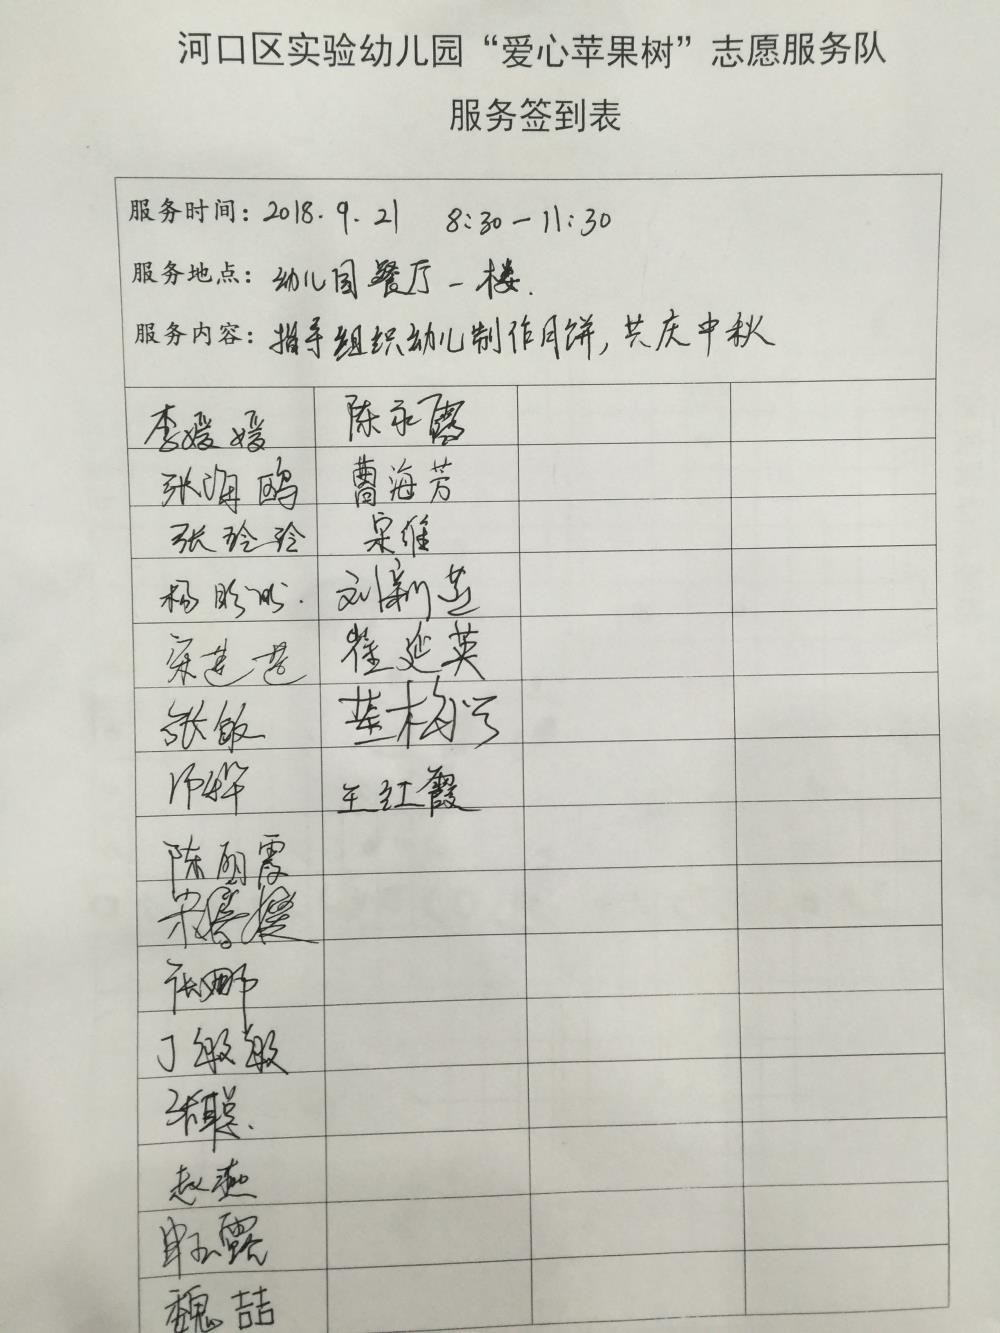 河口区实验幼儿园“爱心苹果树”志愿服务队
服务签到表
服务时间：2018.9.21 8:30—11:30
服务地点：幼儿园餐厅一楼.
服务内容：指导组织幼儿制作月饼，共庆中秋
李媛媛 陈永霞
张海鸥 曹海芳
张玲玲 宋维
杨盼盼. 刘新燕
宋莲莲 崔延英
张敏
师晔 王红霞
陈丽霞
宋
张娜
丁敏敏
张聪.
赵燕
露
魏喆